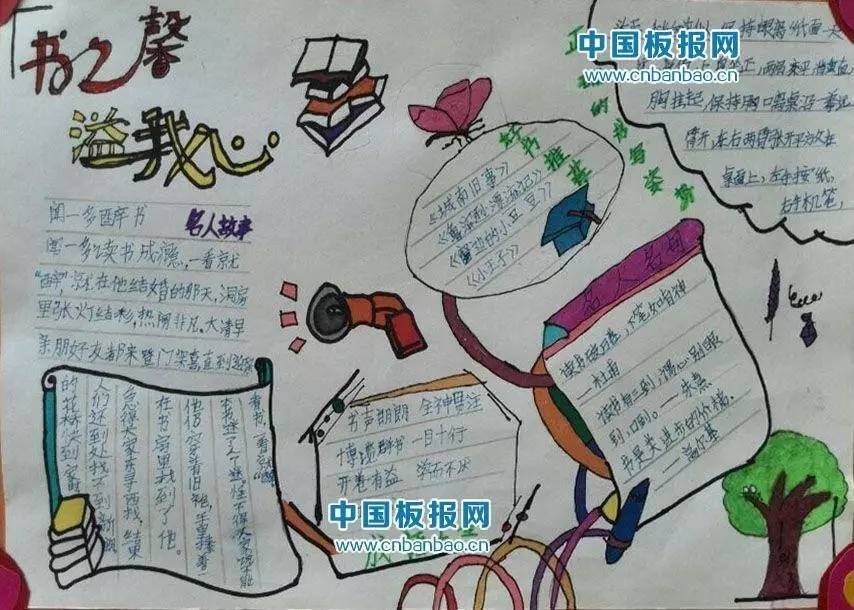 书之馨
溢我心
闻一多醉书
名人故事
闻一多读书成瘾,一看就
"醉",就在他结婚的那天,洞房
里张灯结彩,热闹非凡。大清早
亲朋好友都来登门贺喜,直到
的花轿快到家时,
人们还到处找不到新
急得大家东寻西找,结果
在书房里找到了他。
他仍穿着旧袍,手里捧着一
本书迷了入迷。怪不得大家
看书,一看就"醉"
好书推荐
《城南旧事》
《鲁滨孙漂流记》
《窗边的小豆豆》
《小王子》
正确的书写姿势
保持眼离纸面一尺
胸挂起,保持胸口离桌沿一拳远
臂开,左右两臂张开平放在
桌面上,左手按纸,
右手机笔,
名人名句
读书破万卷,下笔如有神
—杜甫
读书有三到:谓心到眼
到口到。——朱熹
书是人类进步的阶梯。
—高尔基
书声朗朗 全神贯注
博览群书 一目十行
开卷有益 学而不厌
中国板报网
www.cnbanbao.cn
中国板报网
www.cnbanbao.cn